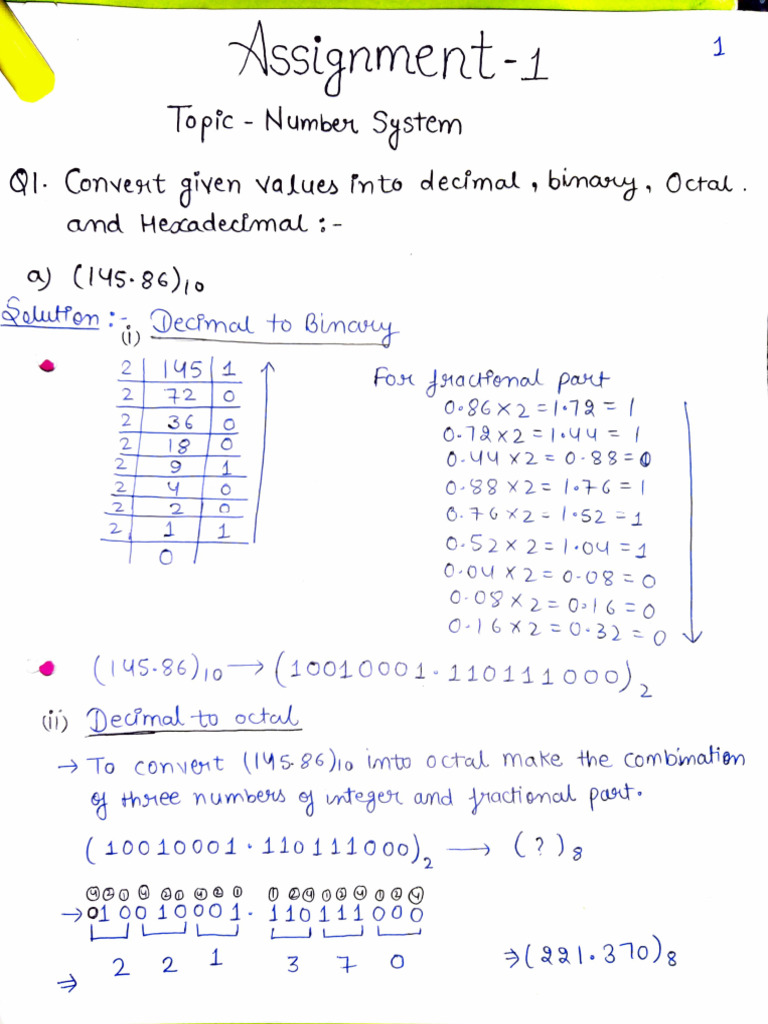 1
Assignment-1
Topic - Number System
Q1. Convert given values into decimal, binary, Octal.
and Hexadecimal :-
a) (145.86)10
Solution :-
(i) Decimal to Binary
2 | 145 | 1
2 | 72 | 0
2 | 36 | 0
2 | 18 | 0
2 | 9 | 1
2 | 4 | 0
2 | 2 | 0
2 | 1 | 1
0
For fractional part
0.86 × 2 = 1.72 = 1
0.72 × 2 = 1.44 = 1
0.44 × 2 = 0.88 = 0
0.88 × 2 = 1.76 = 1
0.76 × 2 = 1.52 = 1
0.52 × 2 = 1.04 = 1
0.04 × 2 = 0.08 = 0
0.08 × 2 = 0.16 = 0
0.16 × 2 = 0.32 = 0
(145.86)10 → (10010001.110111000)2
(ii) Decimal to octal
→ To convert (145.86)10 into octal make the combination
of three numbers of integer and fractional part.
(10010001.110111000)2 → (?)8
→ 010 010 001 . 110 111 000
⇒ 2 2 1 3 7 0 ⇒ (221.370)8